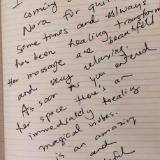 coming
Nora for quit
some times and always
has been healing transform
Her massage are beautiful
and very relaxing.
As soon as you entered
her space there's an
immediately healing
magical vibes.
is an amazing
and